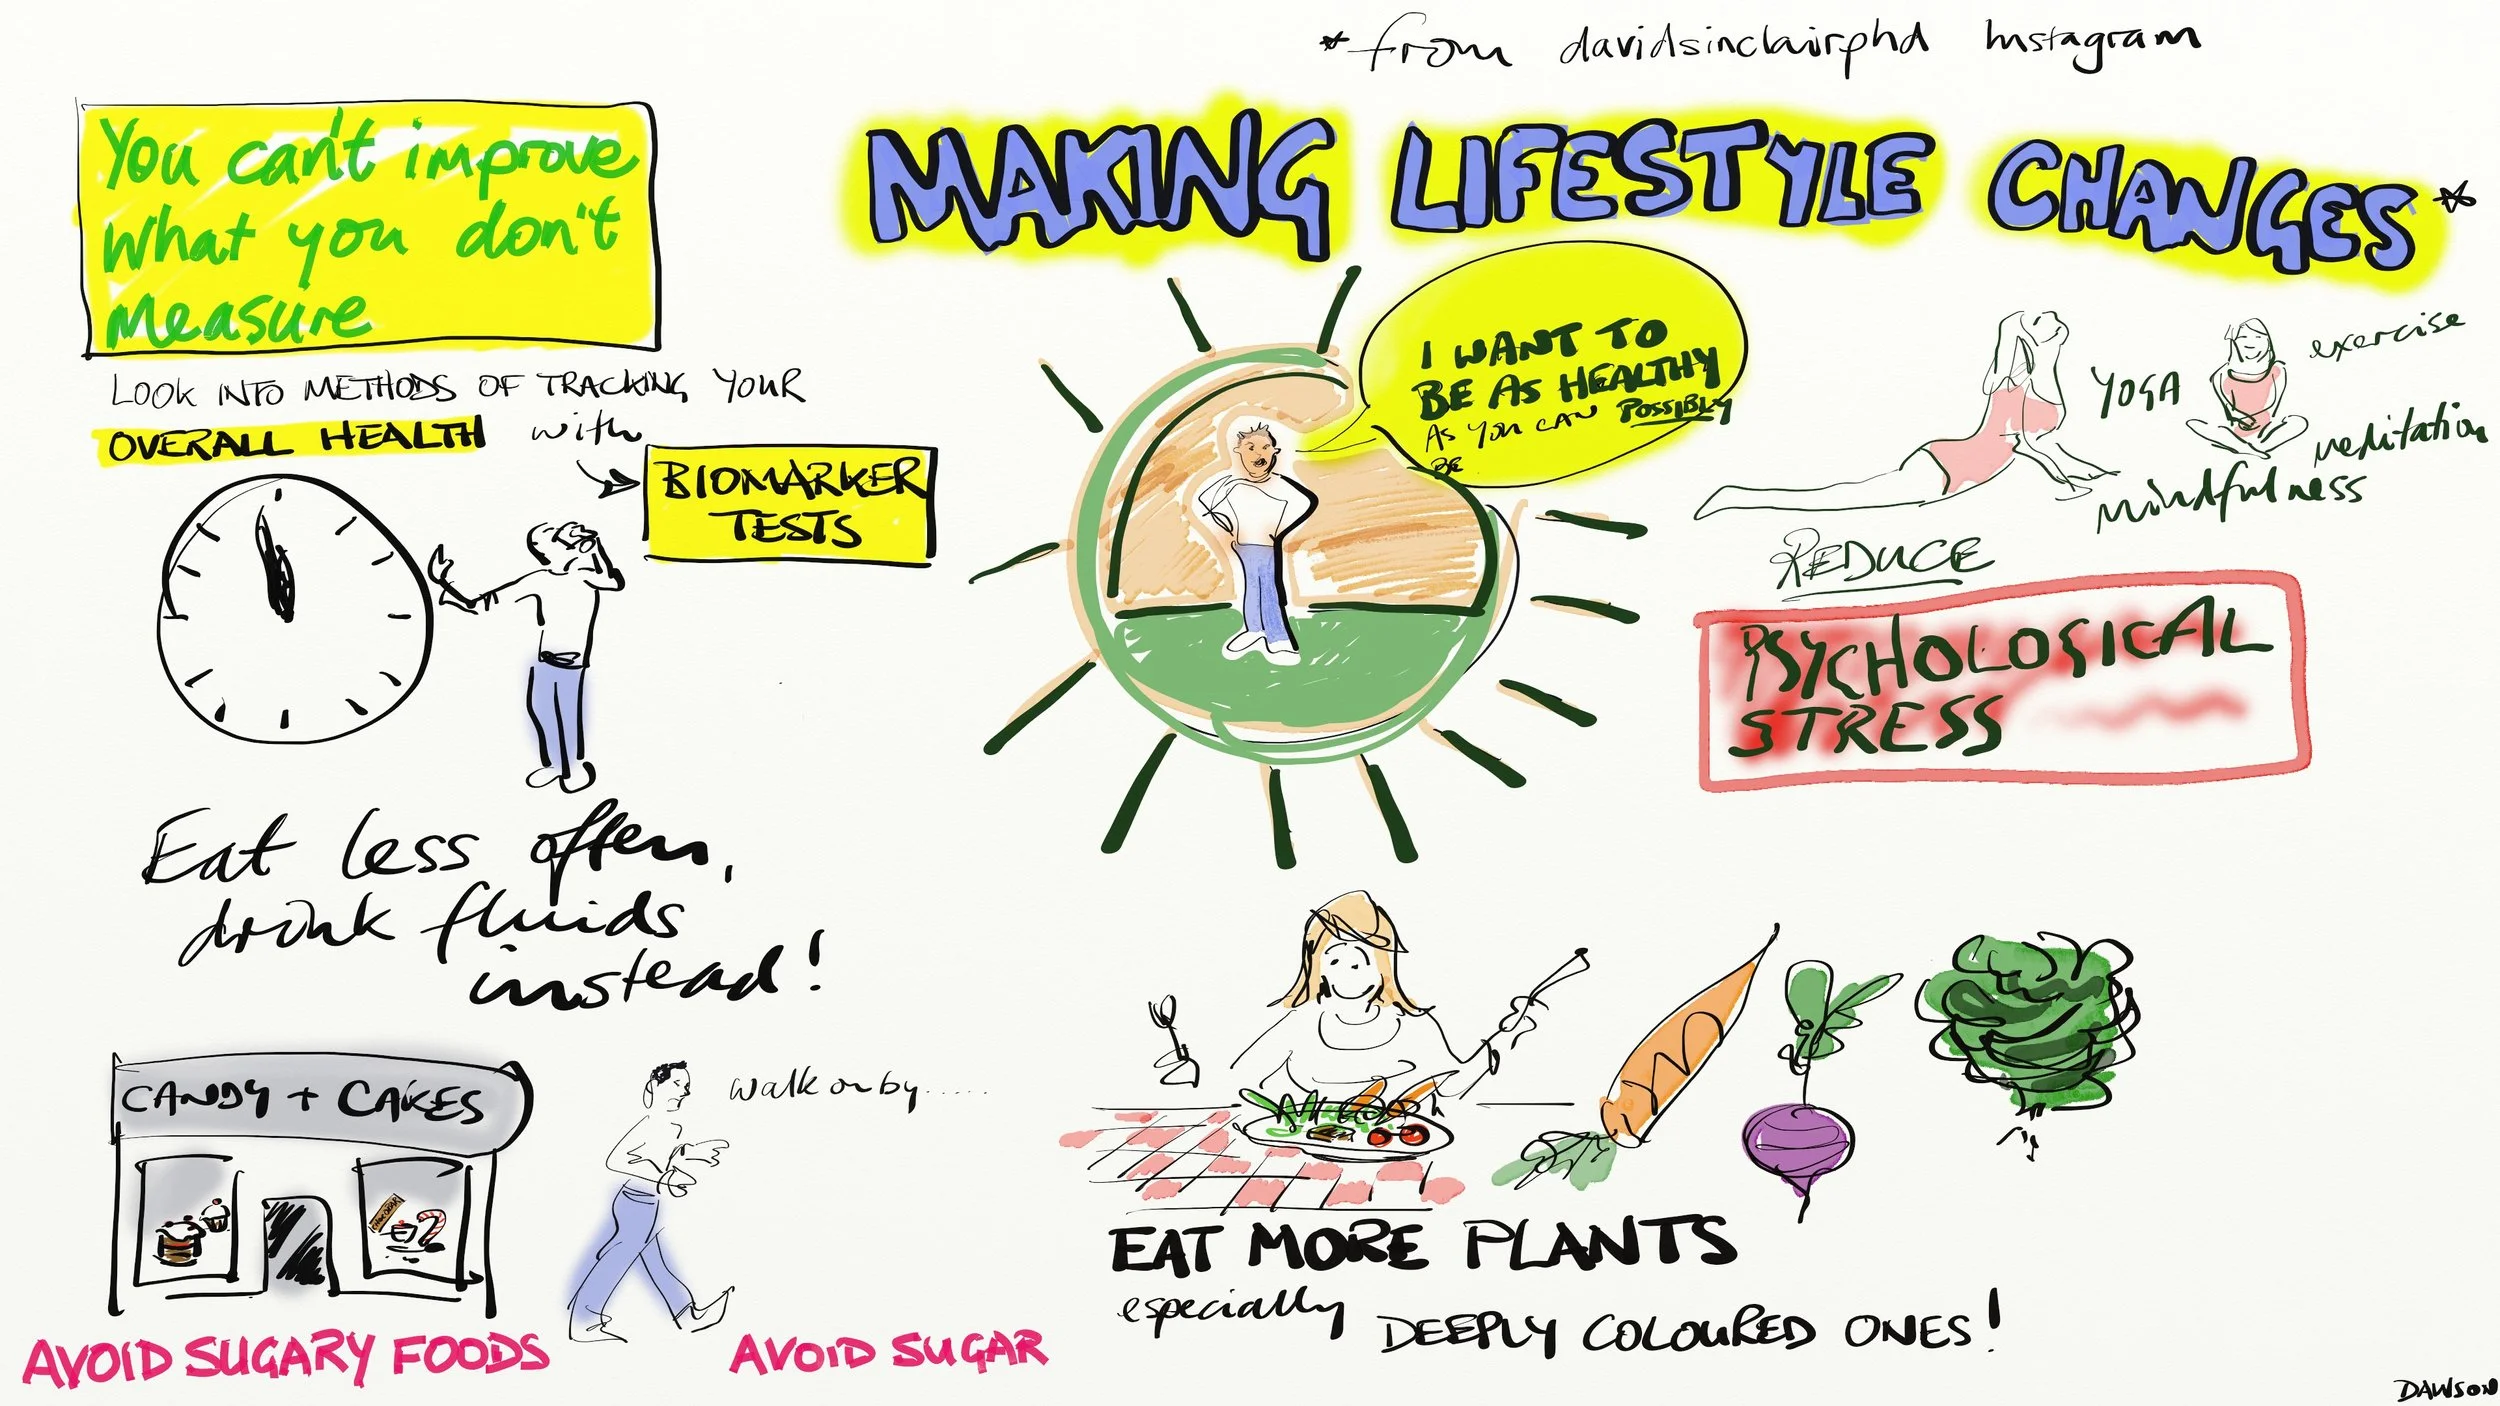 *from davidsinclairphd Instagram
MAKING LIFESTYLE CHANGES*
You can't improve
what you don't
measure
LOOK INTO METHODS OF TRACKING YOUR
OVERALL HEALTH with
BIOMARKER
TESTS
I WANT TO
BE AS HEALTHY
AS YOU CAN POSSIBLY
BE
exercise
YOGA
meditation
mindfulness
REDUCE
PSYCHOLOGICAL
STRESS
Eat less often,
drink fluids
instead!
CANDY + CAKES
walk on by......
AVOID SUGARY FOODS
AVOID SUGAR
EAT MORE PLANTS
especially DEEPLY COLOURED ONES!
DAWSON